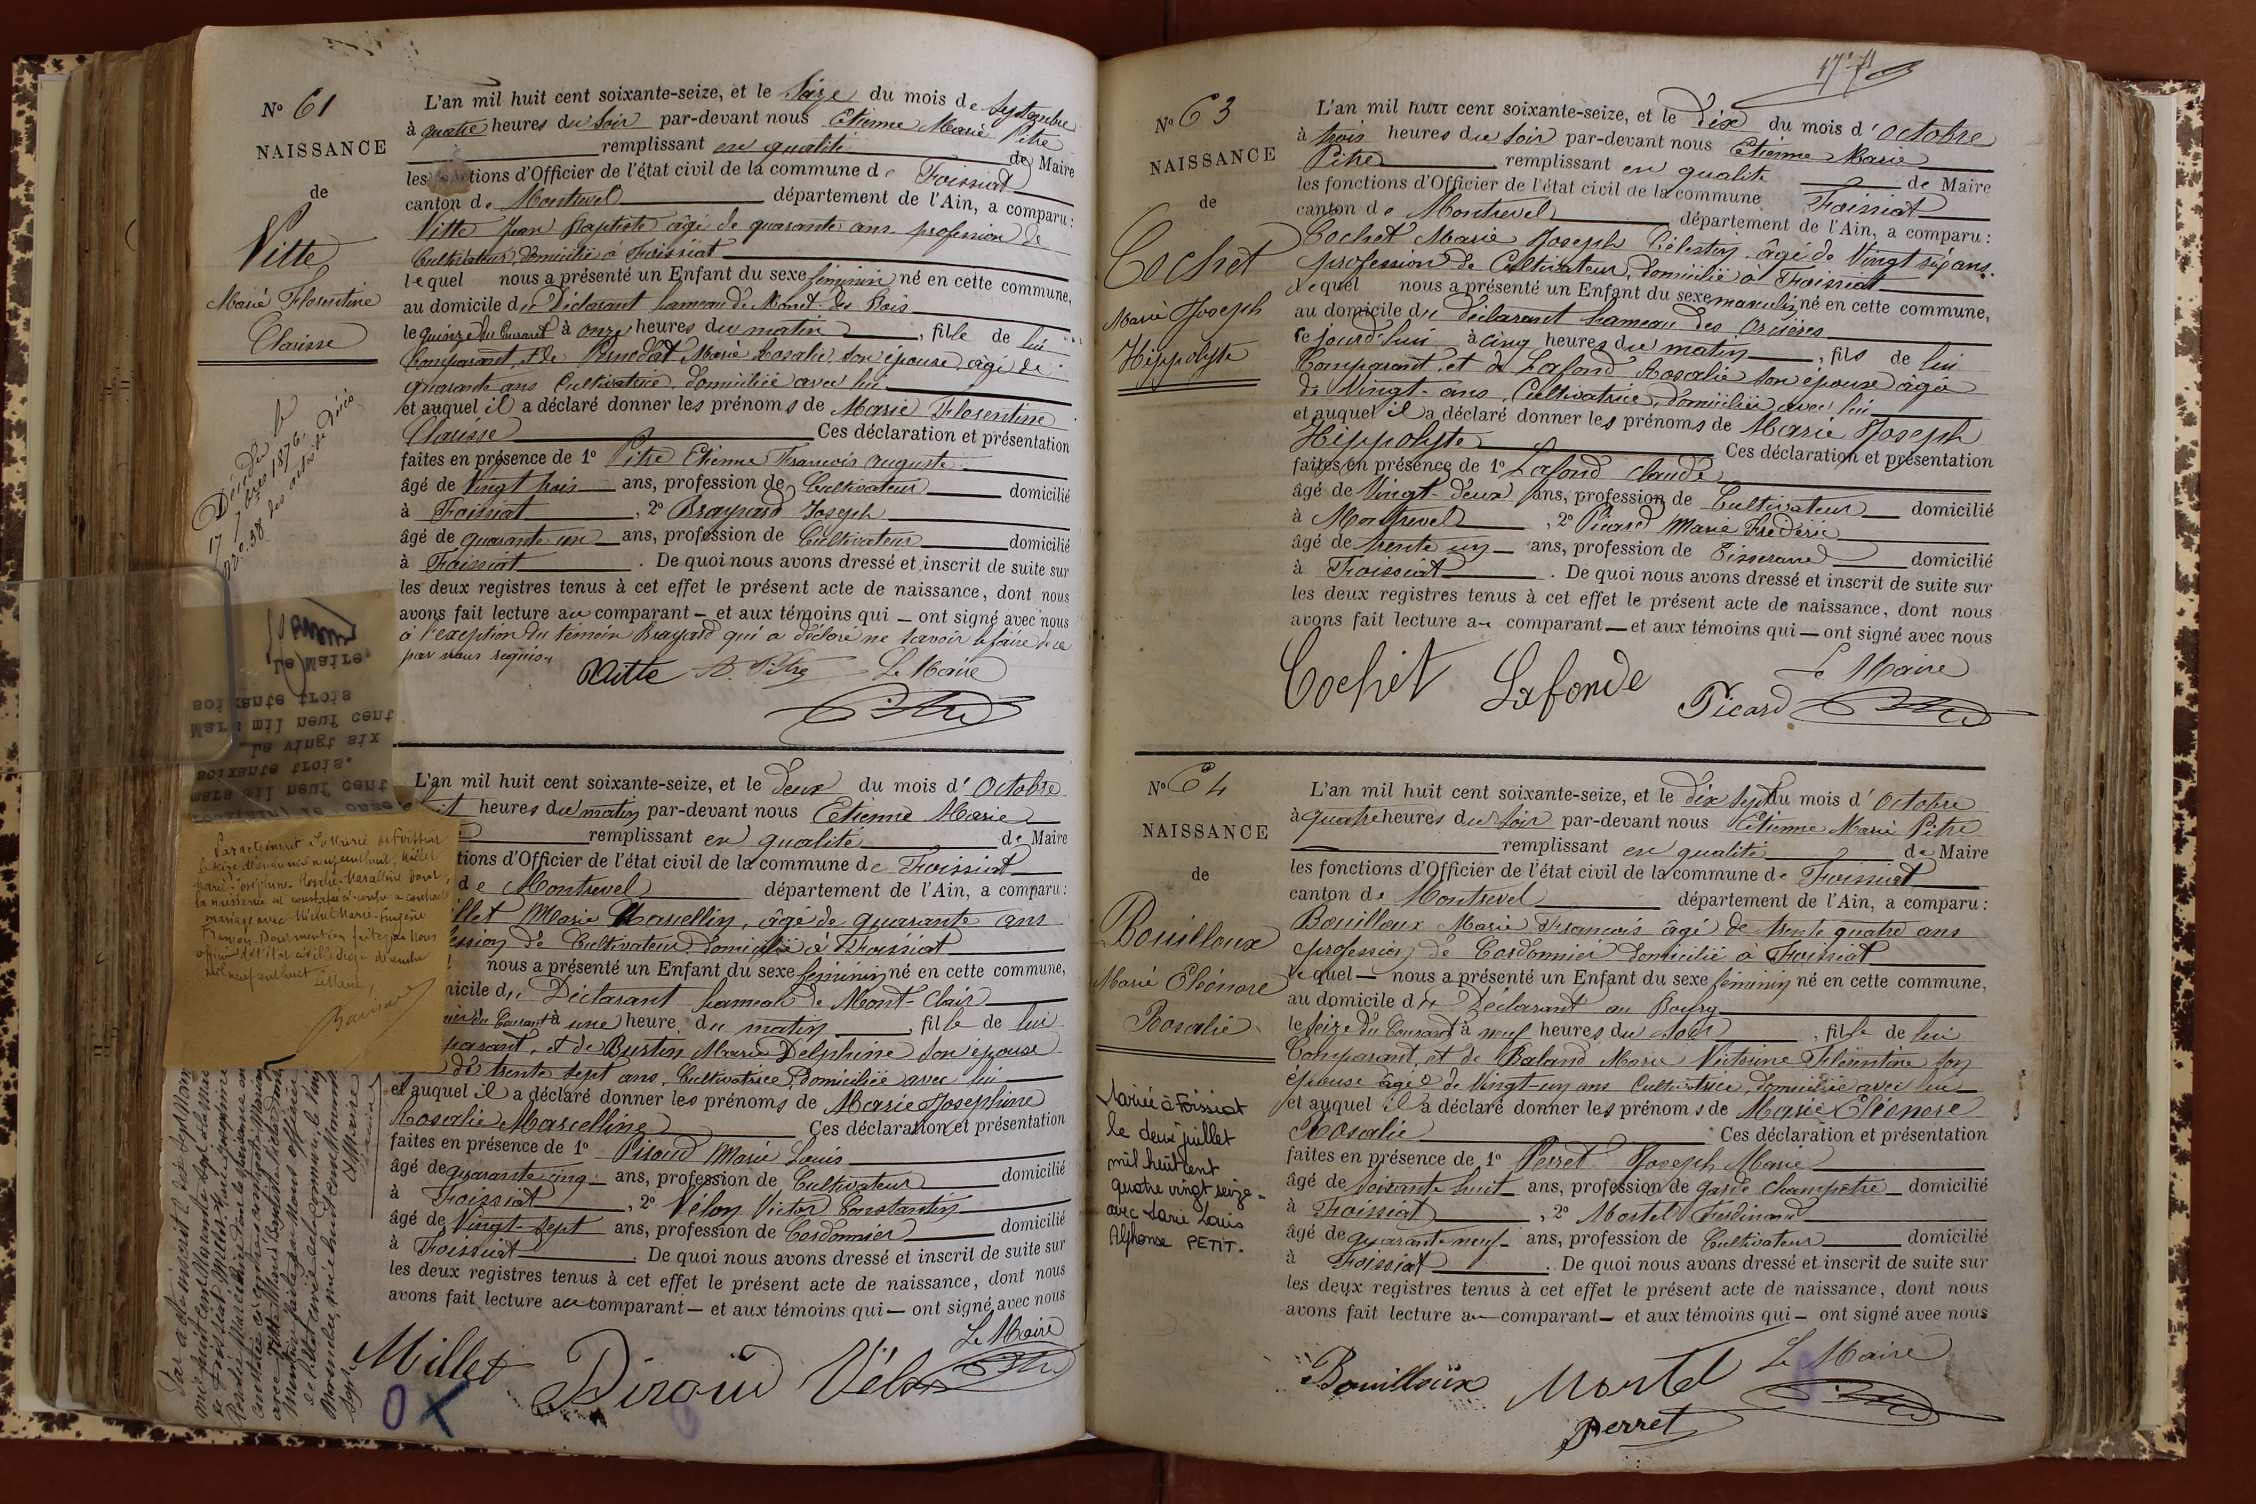 N° 61
NAISSANCE
de
Vitte
Marie Florentine
Clarisse
Décédée le
17 7bres 1876,
n° 38 des actes de Décès
L'an mil huit cent soixante-seize, et le Seize du mois de Septembre
à quatre heures du Soir par-devant nous Etienne Marie Pitre
remplissant en qualité de Maire
les fonctions d'Officier de l'état civil de la commune de Foissiat
canton de Montrevel département de l'Ain, a comparu :
Vitte Jean Baptiste âgé de quarante ans profession de
Cultivateur, domicilié à Foissiat
lequel nous a présenté un Enfant du sexe féminin né en cette commune,
au domicile du Déclarant hameau de Mont des Bois
le quinze du Courant à onze heures du matin, fille de lui
Comparant, et de Marie Rosalie, son épouse, âgé de
quarante ans Cultivatrice, domiciliée avec lui
et auquel il a déclaré donner les prénoms de Marie Florentine
Clarisse Ces déclaration et présentation
faites en présence de 1° Pitre Etienne François Auguste
âgé de Vingt trois ans, profession de Cultivateur domicilié
à Foissiat, 2° Brayard Joseph
âgé de quarante un ans, profession de Cultivateur domicilié
à Foissiat. De quoi nous avons dressé et inscrit de suite sur
les deux registres tenus à cet effet le présent acte de naissance, dont nous
avons fait lecture au comparant — et aux témoins qui — ont signé avec nous
à l'exception du témoin Brayard qui a déclaré ne savoir le faire de ce
par nous requis.
Vitte A. Pitre Le Maire
Pitre
Le Maire,
soixante trois
Mars mil neuf cent
Le vingt six
soixante trois.
mars mil neuf cent
onze
Par acte inscrit à la Mairie de Foissiat
le seize mil neuf cent huit, Millet
Marie-Joséphine-Rosalie-Marcelline dont
la naissance est constatée ci-contre a contracté
mariage avec Michel Marie-Eugène
Dont mention faite par Nous
officier de l'état civil
mil neuf cent huit Le Maire,
L'an mil huit cent soixante-seize, et le Deux du mois d'Octobre
huit heures du matin par-devant nous Etienne Marie
remplissant en qualité de Maire
tions d'Officier de l'état civil de la commune de Foissiat
de Montrevel département de l'Ain, a comparu :
llet Marie Marcellin, âgé de quarante ans
ession de Cultivateur domicilié à Foissiat
nous a présenté un Enfant du sexe féminin né en cette commune,
micile du Déclarant hameau de Mont-Clair
ier du Courant à une heure du matin, fille de lui
parant, et de Burtin Marie Delphine son épouse
de trente sept ans, Cultivatrice, domiciliée avec lui
et auquel il a déclaré donner les prénoms de Marie Josephine
Rosalie Marcelline Ces déclaration et présentation
faites en présence de 1° Piroud Marie Louis
âgé de quarante cinq ans, profession de Cultivateur domicilié
à Foissiat, 2° Vélon Victor Constantin
âgé de Vingt-Sept ans, profession de Cordonnier domicilié
à Foissiat. De quoi nous avons dressé et inscrit de suite sur
les deux registres tenus à cet effet le présent acte de naissance, dont nous
avons fait lecture au comparant — et aux témoins qui — ont signé avec nous
Le Maire
Millet Piroud Vélon Pitre
O X
N° 63
NAISSANCE
de
Cochet
Marie Joseph
Hippolyte
L'an mil huit cent soixante-seize, et le Dix du mois d'Octobre
à trois heures du Soir par-devant nous Etienne Marie
Pitre remplissant en qualité de Maire
les fonctions d'Officier de l'état civil de la commune Foissiat
canton de Montrevel département de l'Ain, a comparu :
Cochet Marie Joseph Célestin âgé de Vingt six ans.
profession de Cultivateur, domicilié à Foissiat
lequel nous a présenté un Enfant du sexe masculin né en cette commune,
au domicile du déclarant hameau des Orcières
ce jourd'hui à cinq heures du matin, fils de lui
Comparant et de Lafond Rosalie son épouse âgée
de Vingt ans, Cultivatrice, domiciliée avec lui
et auquel il a déclaré donner les prénoms de Marie Joseph
Hippolyte Ces déclaration et présentation
faites en présence de 1° Lafond Claude
âgé de Vingt-deux ans, profession de Cultivateur domicilié
à Montrevel, 2° Picard Marie Fréderic
âgé de trente un ans, profession de Tisserand domicilié
à Foissiat. De quoi nous avons dressé et inscrit de suite sur
les deux registres tenus à cet effet le présent acte de naissance, dont nous
avons fait lecture au comparant — et aux témoins qui — ont signé avec nous
Le Maire
Cochet Lafonde Picard Pitre
N° 64
NAISSANCE
de
Bouilloux
Marie Eléonore
Rosalie
Mariée à Foissiat
le deux juillet
mil huit cent
quatre vingt seize
avec Marie Louis
Alphonse PETIT.
L'an mil huit cent soixante-seize, et le dix Sept du mois d'Octobre
à quatre heures du Soir par-devant nous Etienne Marie Pitre
remplissant en qualité de Maire
les fonctions d'Officier de l'état civil de la commune de Foissiat
canton de Montrevel département de l'Ain, a comparu :
Bouilloux Marie François âgé de trente quatre ans
profession de Cordonnier domicilié à Foissiat
lequel — nous a présenté un Enfant du sexe féminin né en cette commune,
au domicile du Déclarant au Bourg
le Seize du Courant à neuf heures du soir, fille de lui
Comparant, et de Baland Marie Victorine Florentine son
épouse âgée de Vingt-un ans Cultivatrice, domiciliée avec lui
et auquel il a déclaré donner les prénoms de Marie Eléonore
Rosalie Ces déclaration et présentation
faites en présence de 1° Perret Joseph Marie
âgé de Soixante huit ans, profession de garde champêtre domicilié
à Foissiat, 2° Mortel Ferdinand
âgé de quarante neuf ans, profession de Cultivateur domicilié
à Foissiat. De quoi nous avons dressé et inscrit de suite sur
les deux registres tenus à cet effet le présent acte de naissance, dont nous
avons fait lecture au comparant — et aux témoins qui — ont signé avec nous
Le Maire
Bouilloux Mortel Pitre
Perret